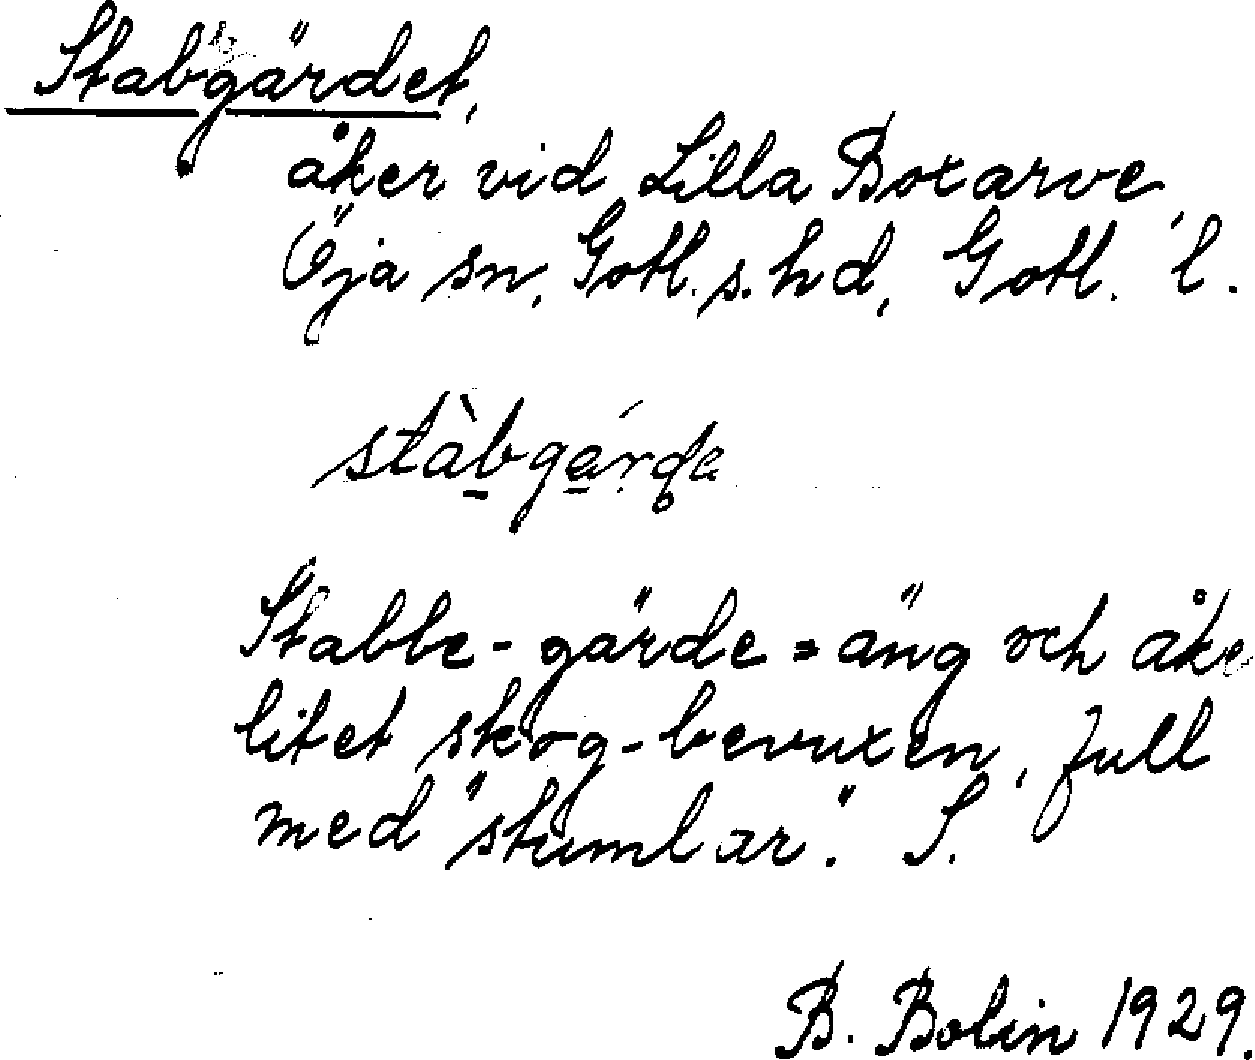 Stabgärdet,
åker vid Lilla Boxarve,
Öja sn, Gotl. s. hd, Gotl. l.
stàbgárda
Stabbe-gärde = äng och åke
litet skog-bevuxen, full
med "stumlar". S.
B. Bolin 1929.